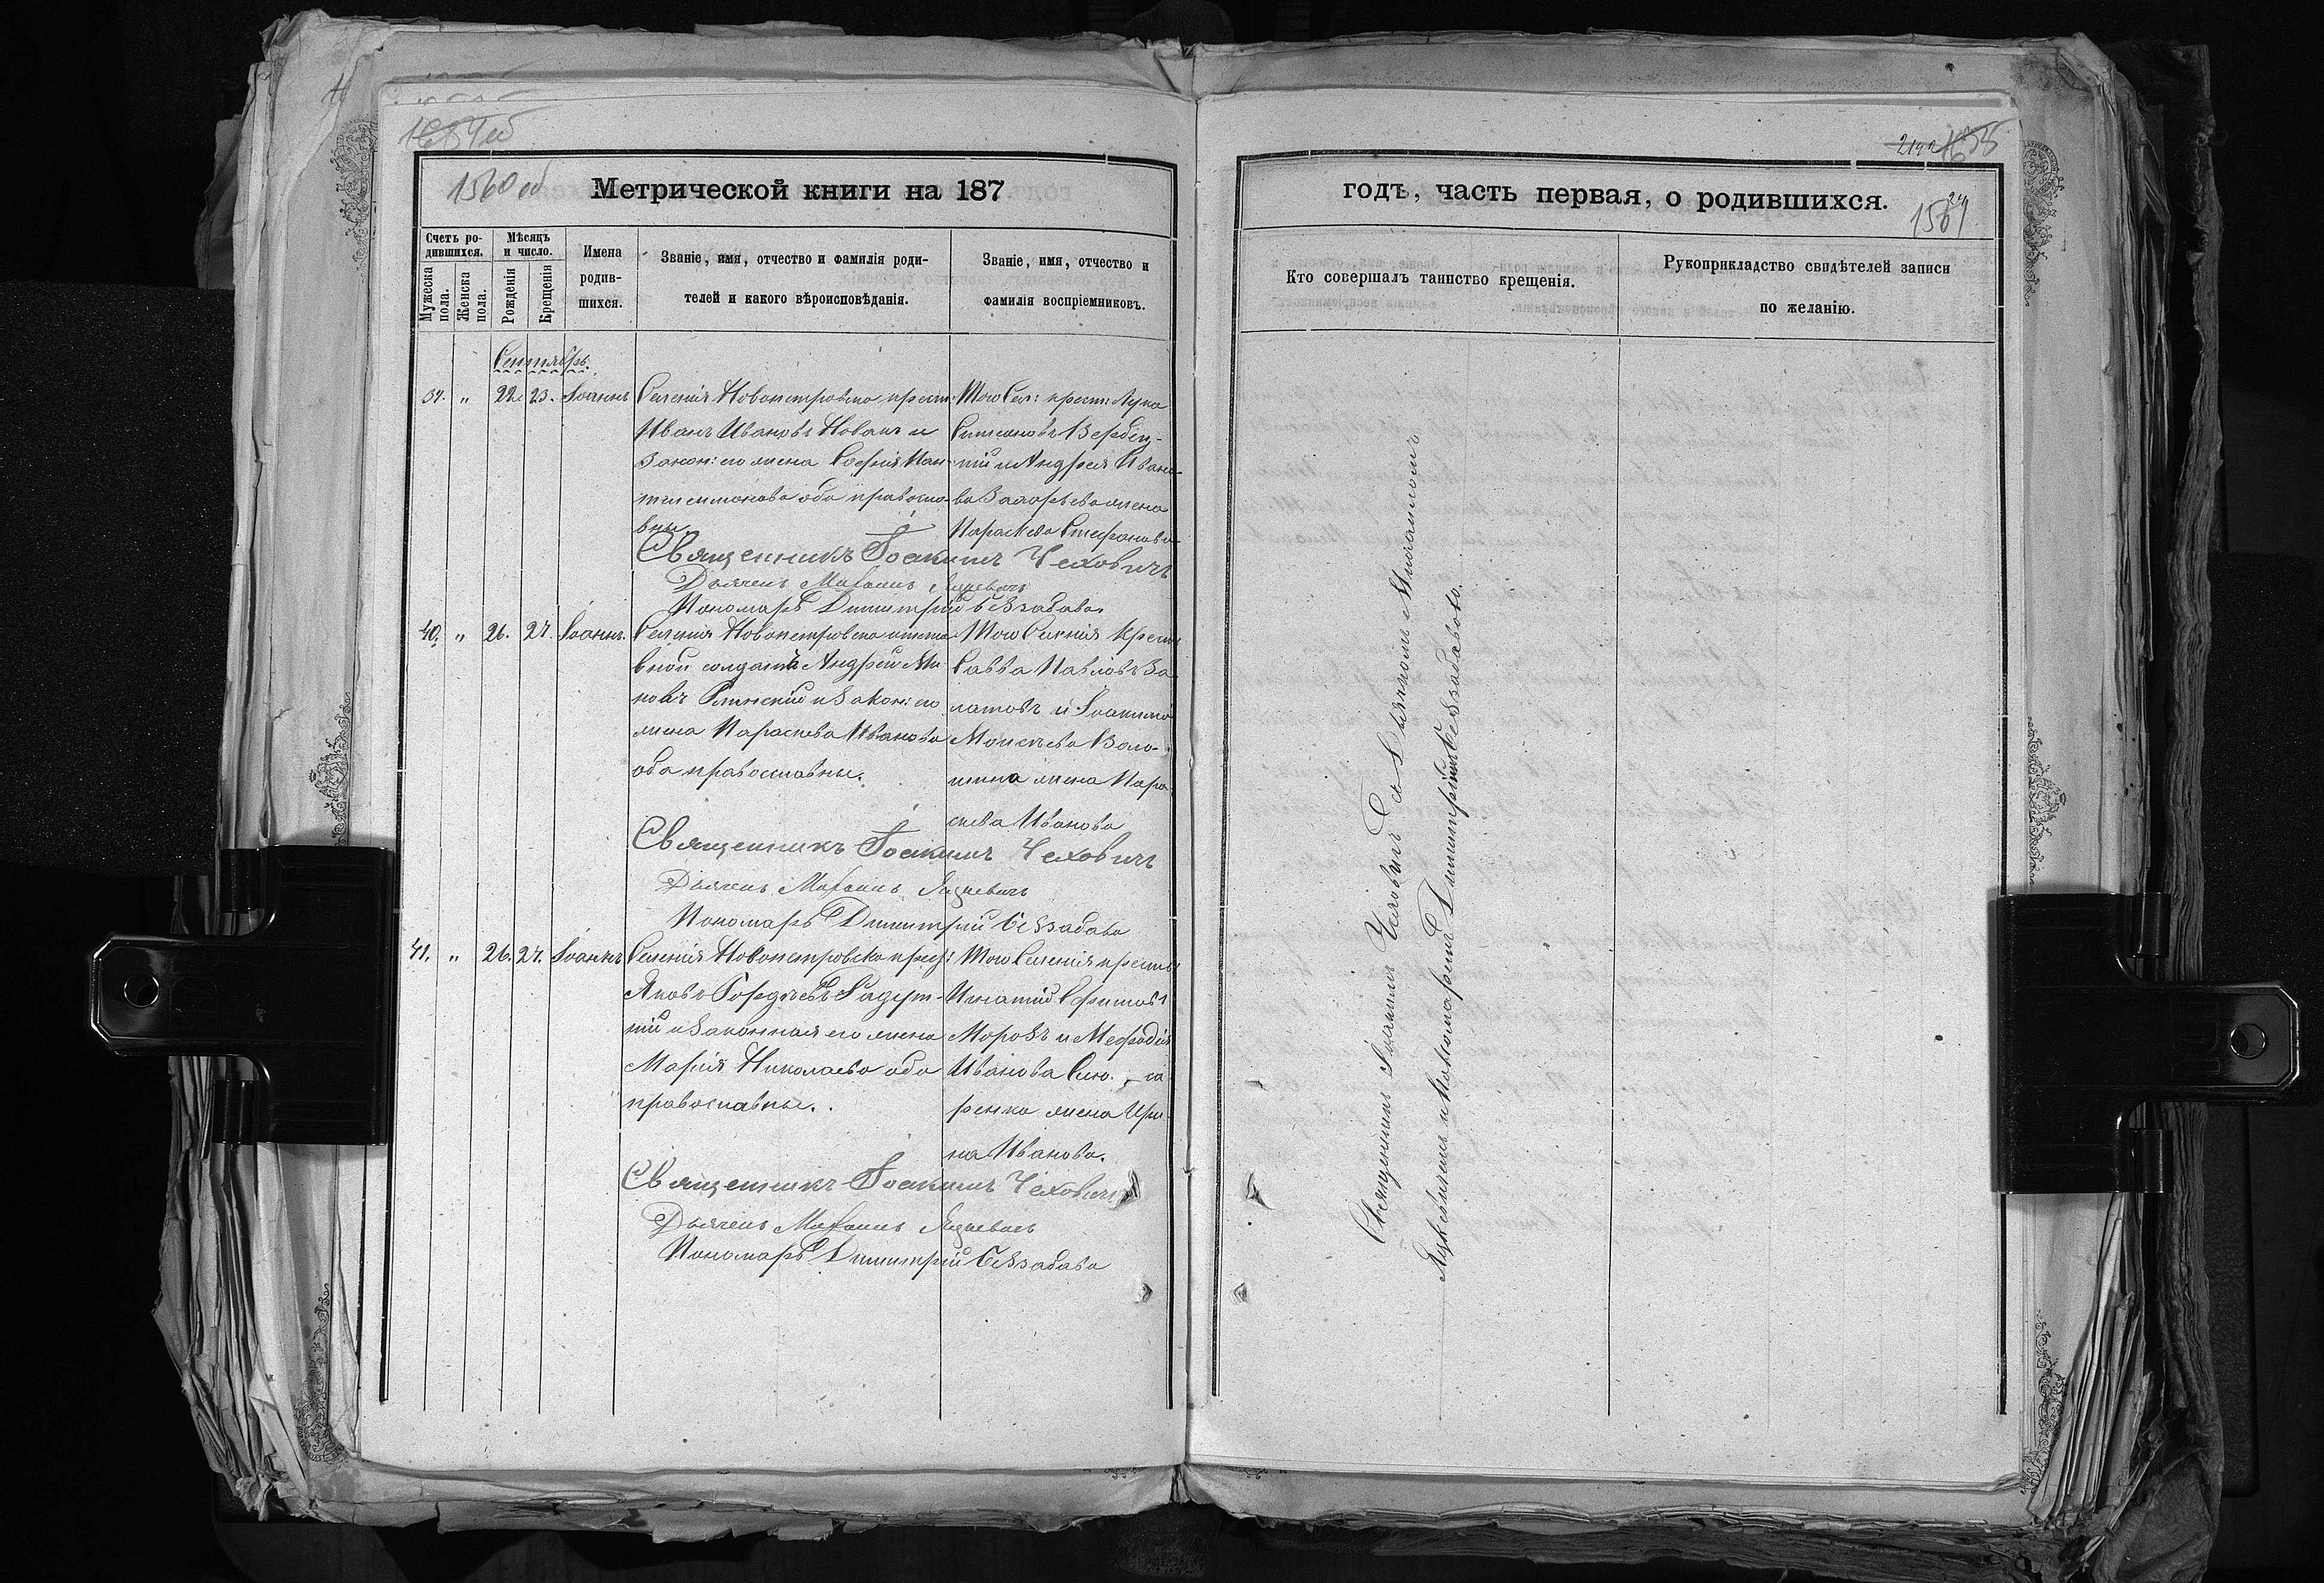 1560 об
Метрической книги на 187
Счетъ ро-
дившихся.
Мѣсяцъ
и число.
Мужеска
пола.
Женска
пола.
Рожденія
Крещенія
Имена
родив-
шихся.
Званіе, имя, отчество и фамилія роди-
телей и какого вѣроисповѣданія.
Званіе, имя, отчество и
фамилія воспріемниковъ.
Сентябрь.
„ 22. 23. Іоаннъ
Селенія Новопетровка крест:
Иванъ Ивановъ Новакъ и
закон: его жена Софія Пан-
телимонова оба правосла-
вны.
Того Сел: крест: Лука
Симеоновъ
и Андрея Ивано-
ва жена
Параскева Стефанова
Священникъ Іоакимъ Чехович
Дьячекъ Михаилъ
Пономарь Димитрій Беззабава
40. „ 26. 27. Іоаннъ.
Селенія Новопетровка отста-
вной солдатъ Андрей
и закон: его
жена Параскева Иванова
оба православные.
Того Селенія Крест:
Савва Павловъ
и Іоакима
Моисеева Воло-
шина жена Пара-
скева Иванова
Священникъ Іоакимъ Чехович
Дьячекъ Михаилъ
Пономарь Димитрій Беззабава
41. „ 26. 27. Іоаннъ
Селенія Новопетровка крест:
Яковъ Гордѣевъ
и законная его жена
Марія Николаева оба
православные.
Того Селенія крест:
Игнатій
Морозъ и Мефодія
Иванова
жена Ири-
на Иванова.
Священникъ Іоакимъ Чехович
Дьячекъ Михаилъ
Пономарь Димитрій Беззабава
годъ, часть первая, о родившихся.
1561
Кто совершалъ таинство крещенія.
Рукоприкладство свидѣтелей записи
по желанію.
Священникъ Іоакимъ Чеховичъ Съ Дьячкомъ Михаиломъ
и Пономаремъ Димитріемъ Беззабавою.